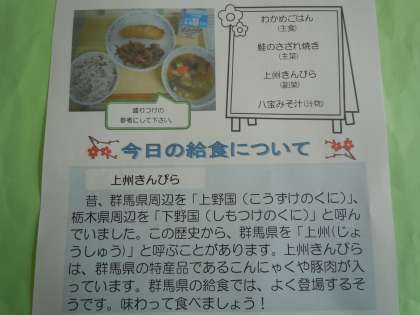 わかめごはん
(主食)
鮭のさざれ焼き
(主菜)
上州きんぴら
(副菜)
八宝みそ汁(汁物)
盛りつけの
参考にして下さい。
今日の給食について
上州きんぴら
昔、群馬県周辺を「上野国(こうずけのくに)」、
栃木県周辺を「下野国(しもつけのくに)」と呼ん
でいました。この歴史から、群馬県を「上州(じょ
うしゅう)」と呼ぶことがあります。上州きんぴら
は、群馬県の特産品であるこんにゃくや豚肉が入
っています。群馬県の給食では、よく登場するそ
うです。味わって食べましょう!